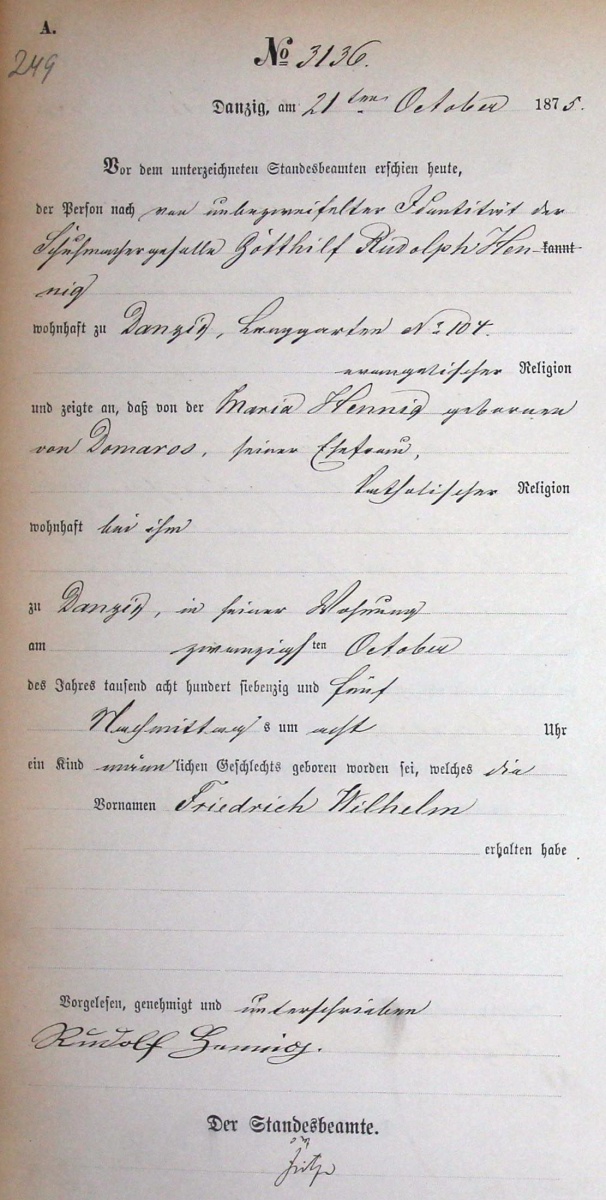 A.
249
No 3136.
Danzig, am 21ten October 1875.
Vor dem unterzeichneten Standesbeamten erschien heute,
der Person nach von unbezweifelter Identität der
Schuhmachergeselle Gotthilf Rudolph Hen- kannt
nig
wohnhaft zu Danzig, Langgarten No 104.
evangelischer Religion
und zeigte an, daß von der Maria Hennig geborenen
von Domaros, seiner Ehefrau,
katholischer Religion
wohnhaft bei ihm
zu Danzig, in seiner Wohnung
am zwanzigsten October
des Jahres tausend acht hundert siebenzig und fünf
Nachmittags um acht Uhr
ein Kind männlichen Geschlechts geboren worden sei, welches die
Vornamen Friedrich Wilhelm
erhalten habe.
Vorgelesen, genehmigt und unterschrieben
Rudolf Hennig.
Der Standesbeamte.